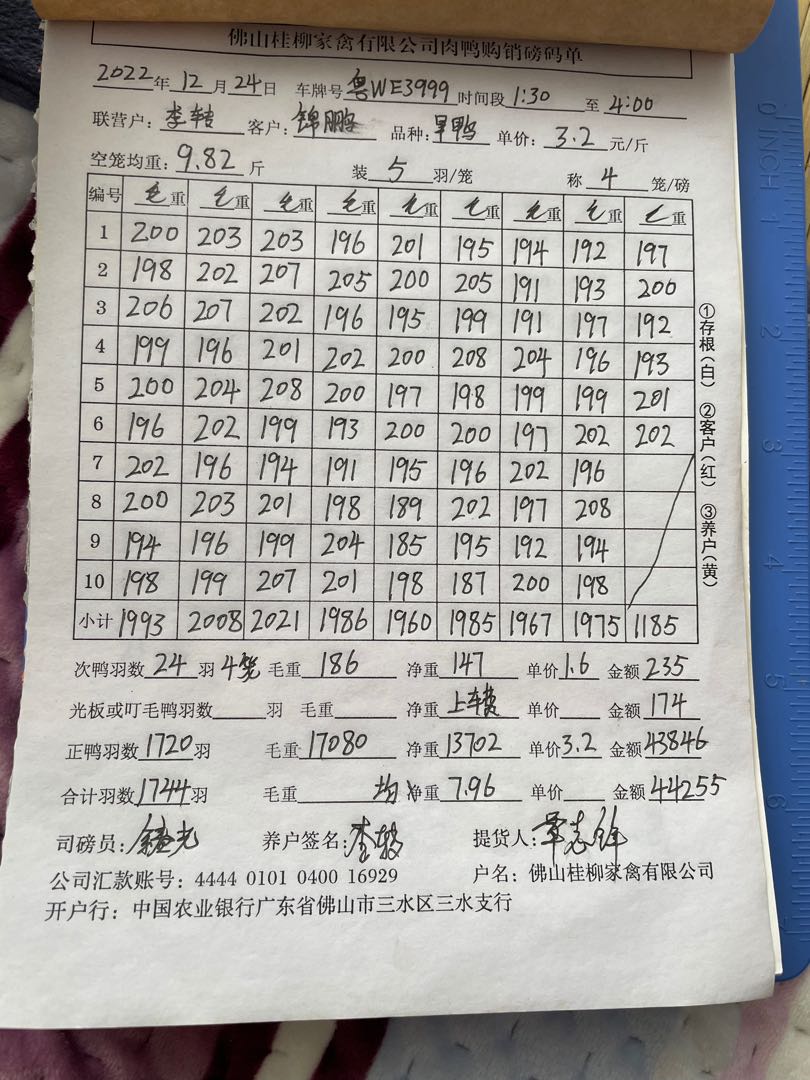 佛山桂柳家禽有限公司肉鸭购销磅码单
2022年12月24日 车牌号粤WE3999时间段1:30至4:00
联营户：李转 客户：锦鹏 品种：旱鸭 单价：3.2元/斤
空笼均重：9.82斤 装5羽/笼 称4笼/磅
编号 毛重 毛重 毛重 毛重 毛重 毛重 毛重 毛重 毛重
1 200 203 203 196 201 195 194 192 197
2 198 202 207 205 200 205 191 193 200
3 206 207 202 196 195 199 191 197 192
4 199 196 201 202 200 208 204 196 193
5 200 204 208 200 197 198 199 199 201
6 196 202 199 193 200 200 197 202 202
7 202 196 194 191 195 196 202 196
8 200 203 201 198 189 202 197 208
9 194 196 199 204 185 195 192 194
10 198 199 207 201 198 187 200 198
小计 1993 2008 2021 1986 1960 1985 1967 1975 1185
次鸭羽数24羽 4笼 毛重186 净重147 单价1.6 金额235
光板或叮毛鸭羽数 羽 毛重 净重上车费 单价 金额174
正鸭羽数1720羽 毛重17080 净重13702 单价3.2 金额43846
合计羽数1744羽 毛重 均 净重7.96 单价 金额44255
司磅员： 养户签名：李转 提货人：
公司汇款账号：4444 0101 0400 16929 户名：佛山桂柳家禽有限公司
开户行：中国农业银行广东省佛山市三水区三水支行
①存根（白） ②客户（红） ③养户（黄）
0 INCH 1 2 3 4 5 6